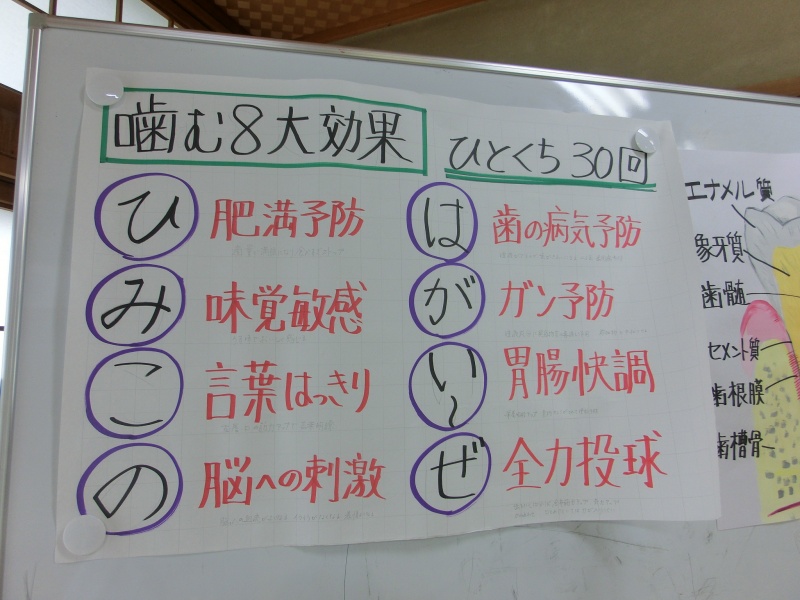 噛む8大効果
ひとくち30回
ひ 肥満予防
み 味覚敏感
こ 言葉はっきり
の 脳への刺激
は 歯の病気予防
が ガン予防
い~ 胃腸快調
ぜ 全力投球
エナメル質
象牙質
歯髄
セメント質
歯根膜
歯槽骨